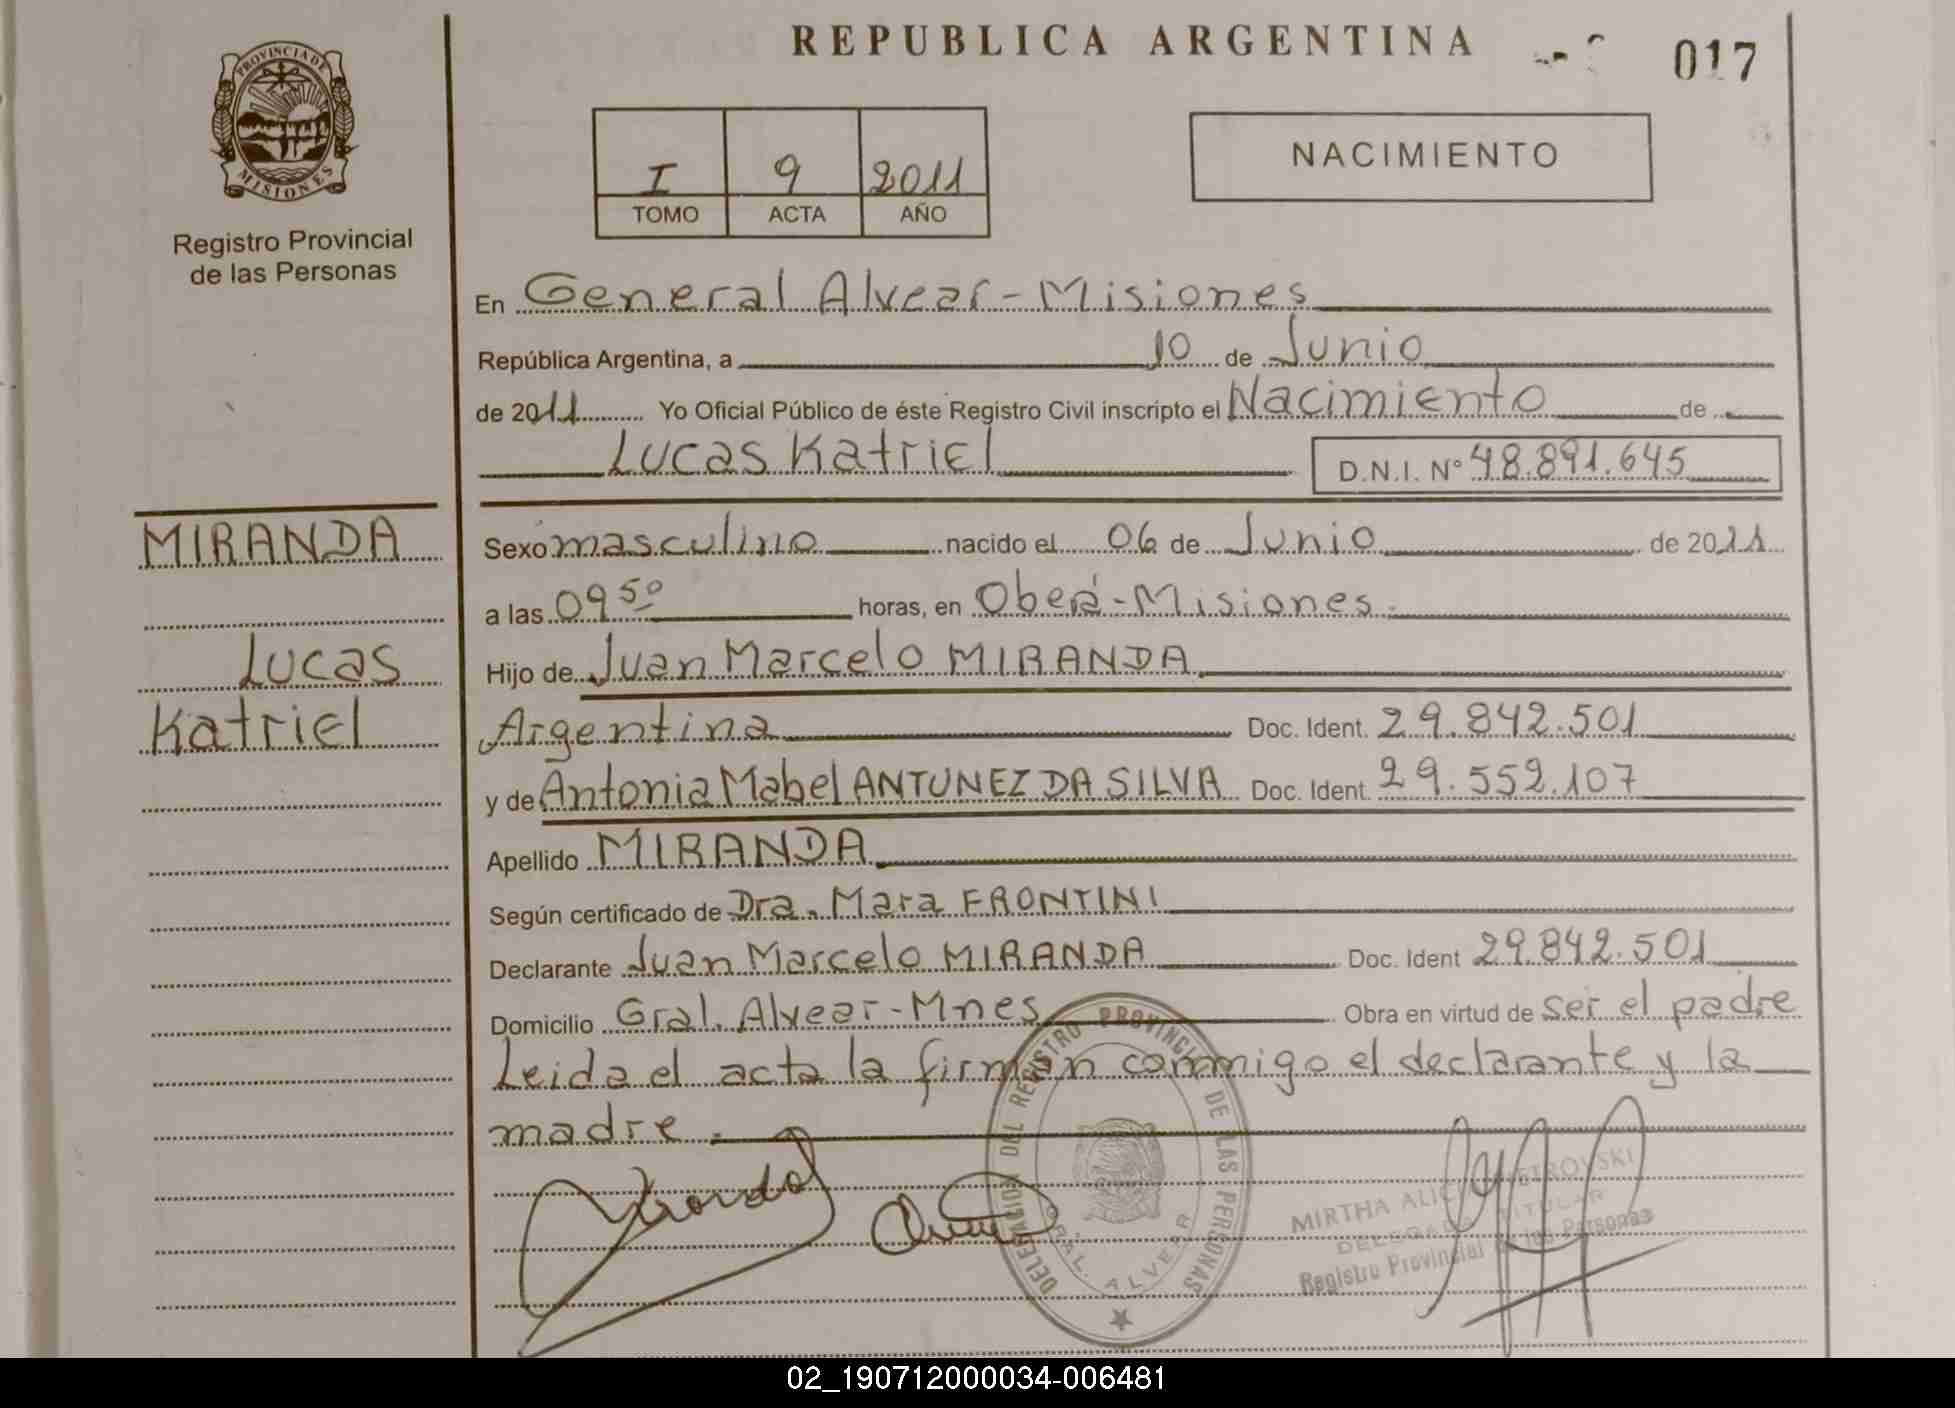 REPUBLICA ARGENTINA
017
PROVINCIA DE
MISIONES
Registro Provincial
de las Personas
I 9 2011
TOMO ACTA AÑO
NACIMIENTO
En General Alvear - Misiones
República Argentina, a 10 de Junio
de 2011 Yo Oficial Público de éste Registro Civil inscripto el Nacimiento de
Lucas Katriel D.N.I. Nº 48.891.645
MIRANDA
Lucas
Katriel
Sexo masculino nacido el 06 de Junio de 2011
a las 09 50 horas, en Oberá - Misiones.
Hijo de Juan Marcelo MIRANDA
Argentina Doc. Ident. 29.842.501
y de Antonia Mabel ANTUNEZ DA SILVA Doc. Ident. 29.552.107
Apellido MIRANDA
Según certificado de Dra. Mara FRONTINI
Declarante Juan Marcelo MIRANDA Doc. Ident 29.842.501
Domicilio Gral. Alvear - Mnes Obra en virtud de ser el padre
Leida el acta la firman conmigo el declarante y la
madre.
DELEGACION DEL REGISTRO PROVINCIAL DE LAS PERSONAS
GRAL. ALVEAR
MIRTHA ALICIA
DELEGADA TITULAR
Registro Provincial de las Personas
02_190712000034-006481